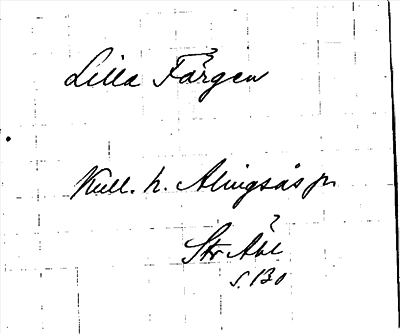 Lilla Färgen
Kull. h. Alingsås pr
?
Str Åbl
s. 130